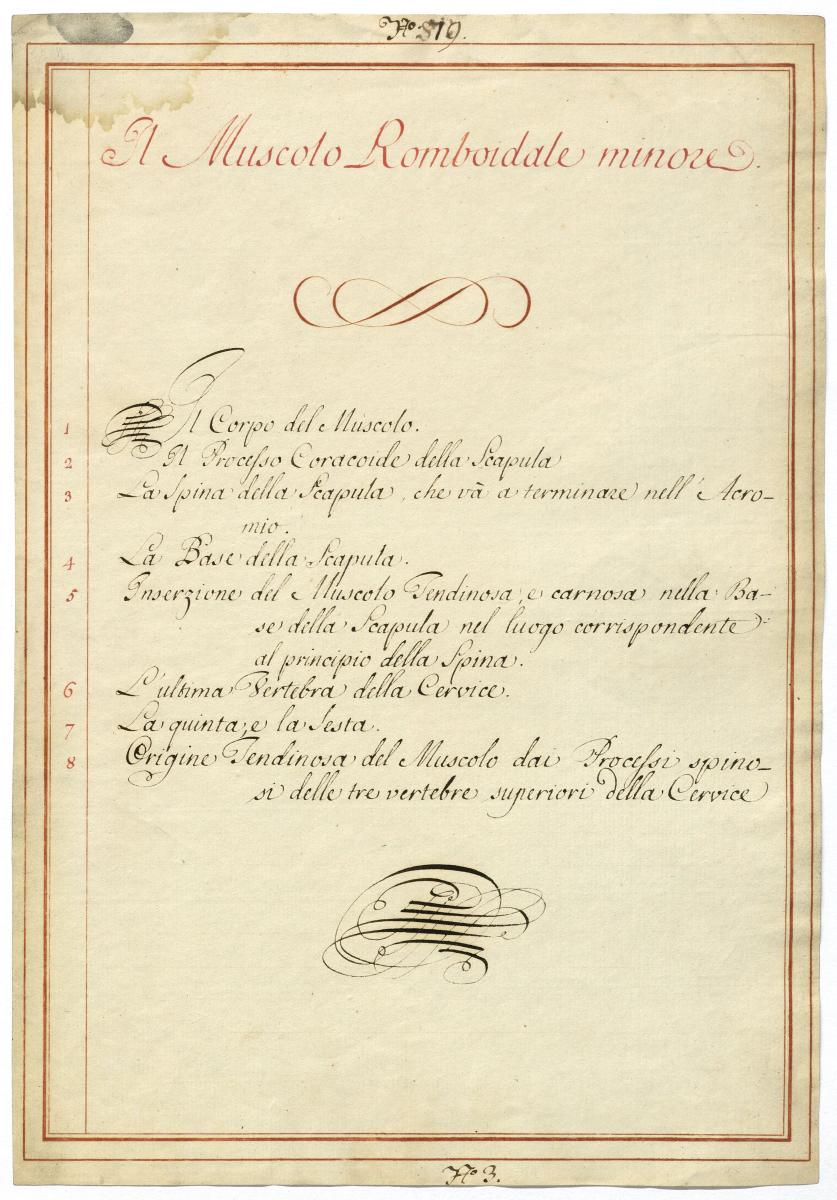 No. 819.
Il Muscolo Romboidale minore.
1 Il Corpo del Muscolo.
2 Il Processo Coracoide della Scapula
3 La Spina della Scapula, che và a terminare nell' Acro-
mio.
4 La Base della Scapula.
5 Inserzione del Muscolo Tendinosa, e carnosa nella Ba-
se della Scapula nel luogo corrispondente
al principio della Spina.
6 L'ultima Vertebra della Cervice.
7 La quinta, e la Sesta.
8 Origine Tendinosa del Muscolo dai Processi spino-
si delle tre vertebre superiori della Cervice
No. 3.